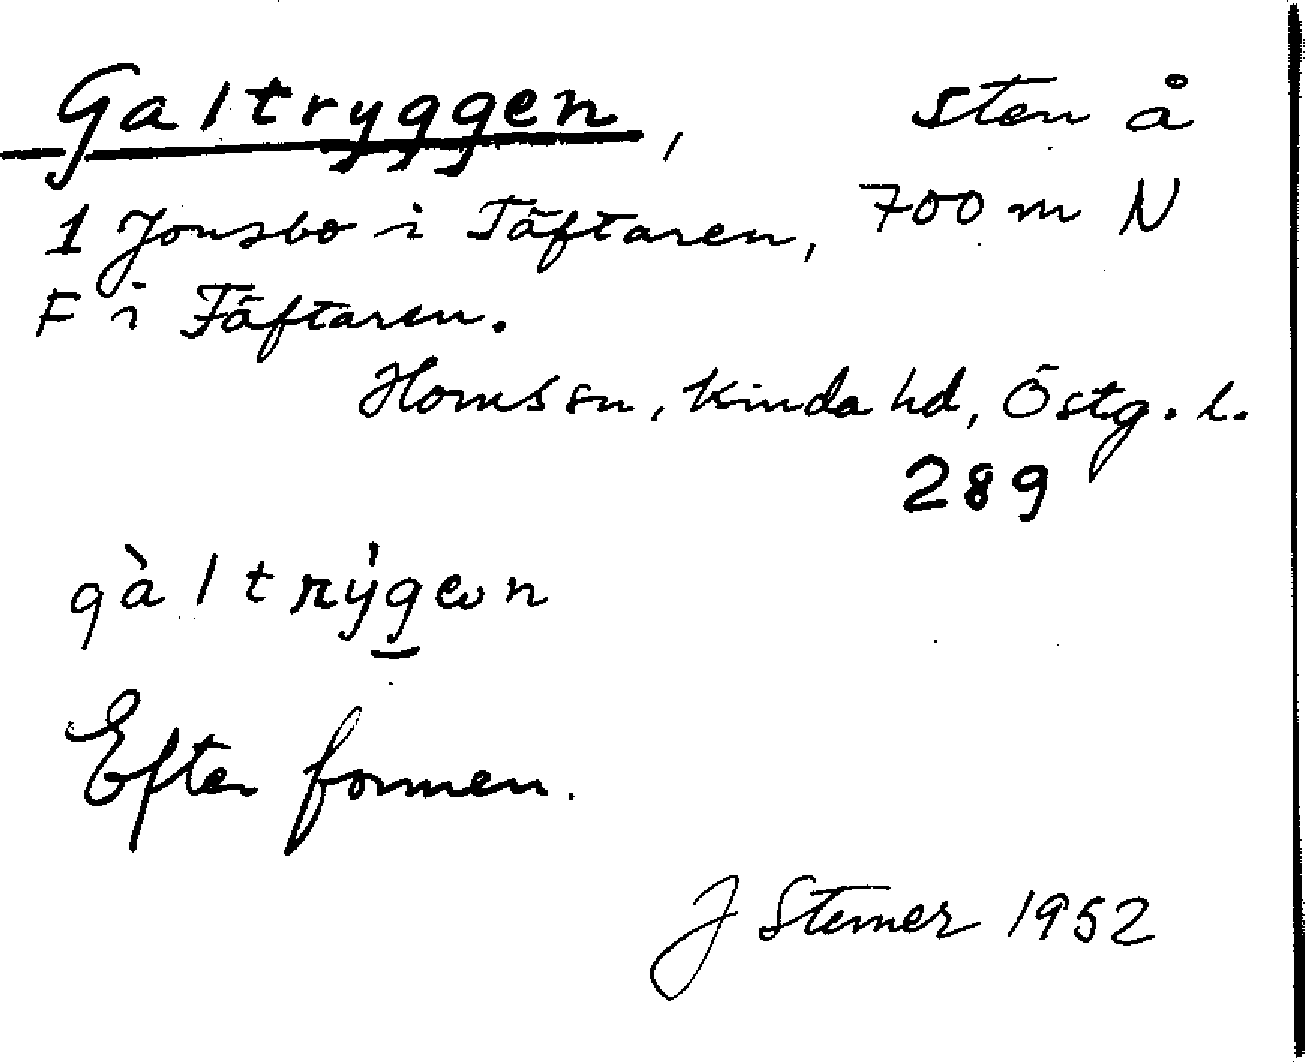 Galtryggen, sten å
1 Jonsbo i Täftaren, 700 m N
F i Täftaren.
Horns sn, Kinda hd, Östg. l.
289
gàltrýgen
Efter formen.
J Sterner 1952